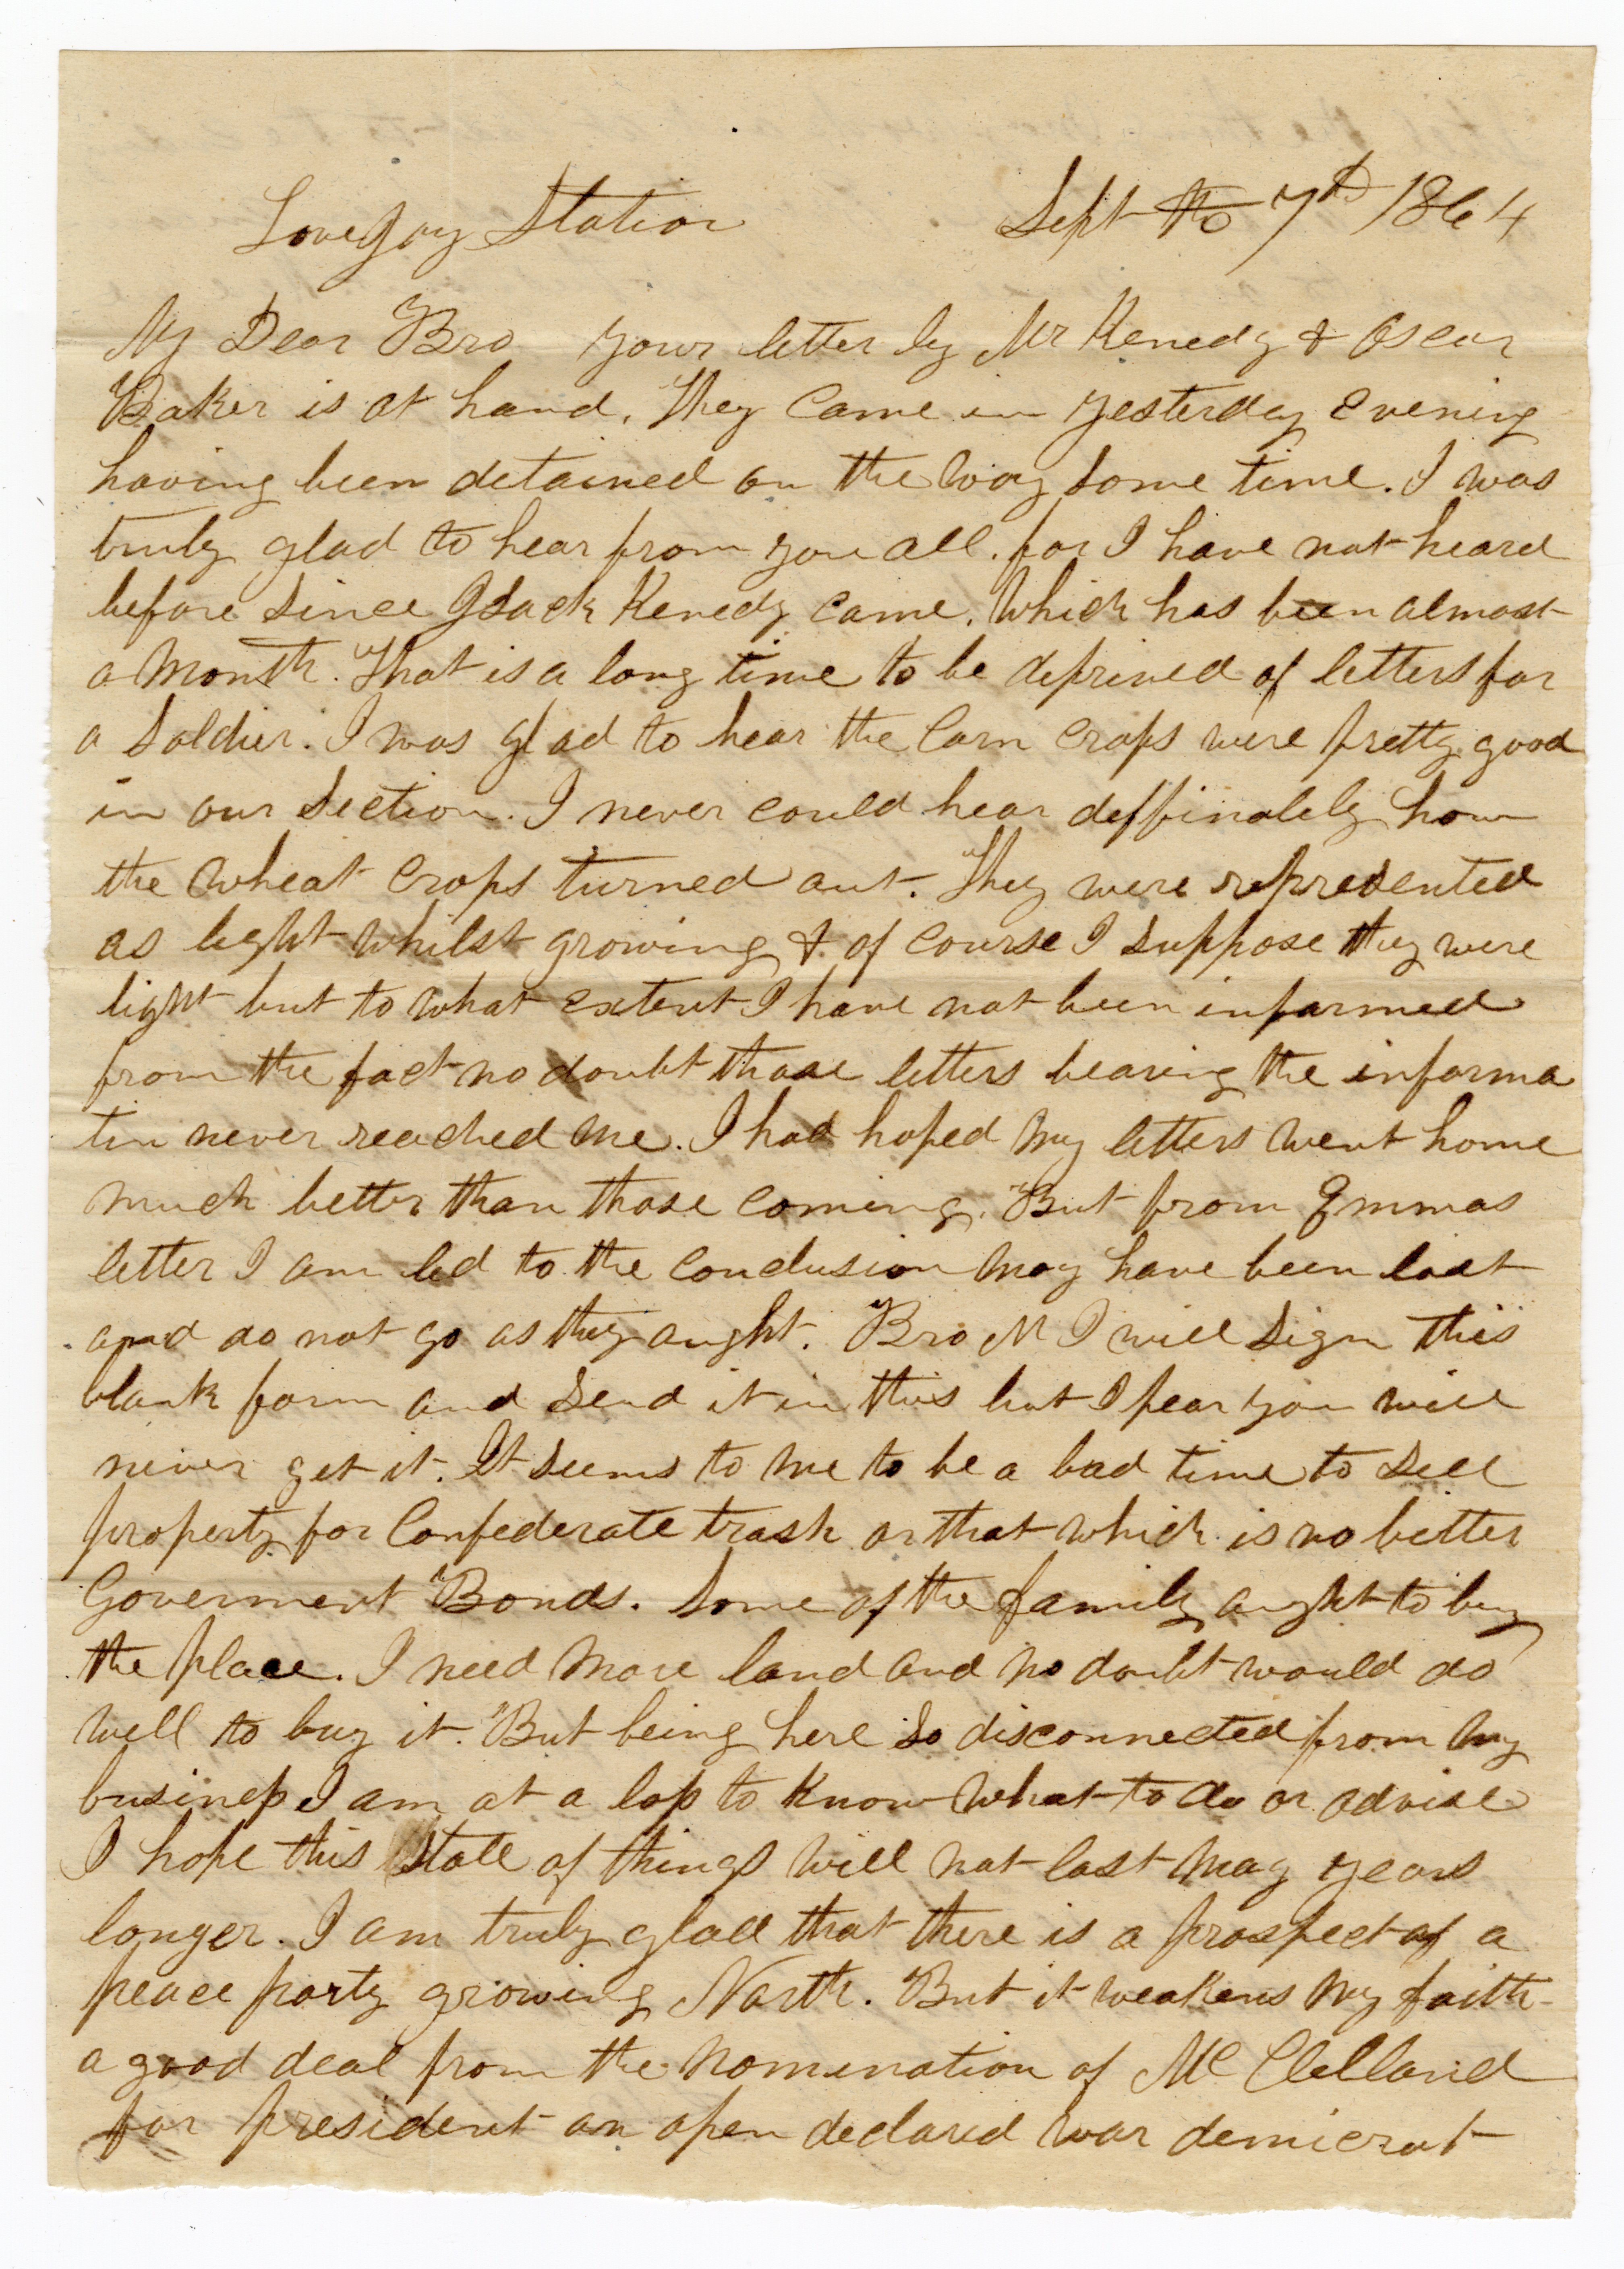 Lovejoy Station Sept the 7th 1864
My Dear Bro your letter by Mr Kenedy & Oscar
Baker is at hand. They came in yesterday evening
having been detained on the way some time. I was
truly glad to hear from you all. for I have not heard
before since Jack Kenedy came. Which has been almost
a month. That is a long time to be deprived of letters for
a soldier. I was glad to hear the Corn crops were pretty good
in our section. I never could hear deffinately how
the wheat crops turned out. They were represented
as light whilst growing & of course I suppose they were
light but to what extent I have not been informed
from the fact no doubt those letters bearing the informa
tin never reached me. I had hoped my letters went home
much better than those coming. But from Emmas
letter I am led to the conclusion may have been lost
and do not go as they aught. Bro M I will sign this
blank form and send it in this but I fear you will
never get it. It seems to me to be a bad time to sell
property for Confederate trash or that which is no better
Goverment Bonds. Some of the family aught to buy
the place. I need more land and no doubt would do
well to buy it. But being here so disconnected from my
business I am at a loss to know what to do or advise
I hope this state of things will not last may years
longer. I am truly glad that there is a prospect of a
peace party growing North. But it weakens my faith
a good deal from the nomination of McClelland
for president an open declared war demicrat